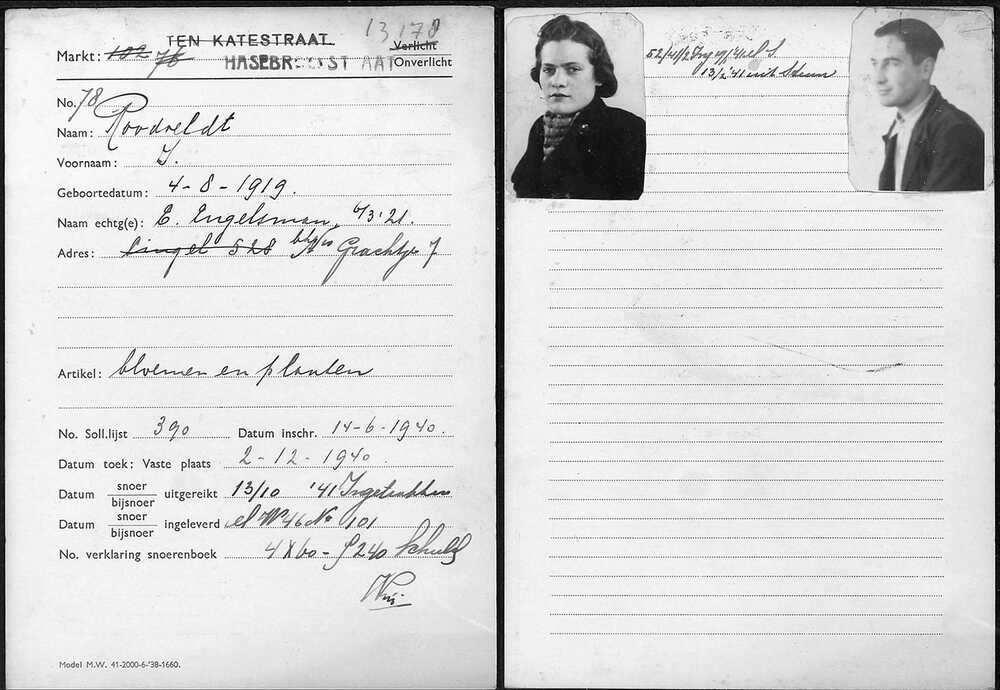 13178
TEN KATESTRAAT Verlicht
Markt: 102 76 HASEBROEKSTRAAT Onverlicht
No. 78
Naam: Roodveldt
Voornaam: I.
Geboortedatum: 4-8-1919.
Naam echtg(e): E. Engelsman, 6/3 '21.
Adres: Singel 528 Grachtje 7
Artikel: bloemen en planten
No. Soll.lijst 390 Datum inschr. 14-6-1940.
Datum toek: Vaste plaats 2-12-1940.
Datum snoer/bijsnoer uitgereikt 13/10 '41 Ingetrokken
Datum snoer/bijsnoer ingeleverd No 101
No. verklaring snoerenboek 4 x 60 - f 240 schuld
Model M.W. 41-2000-6-'38-1660.
13/2 '41